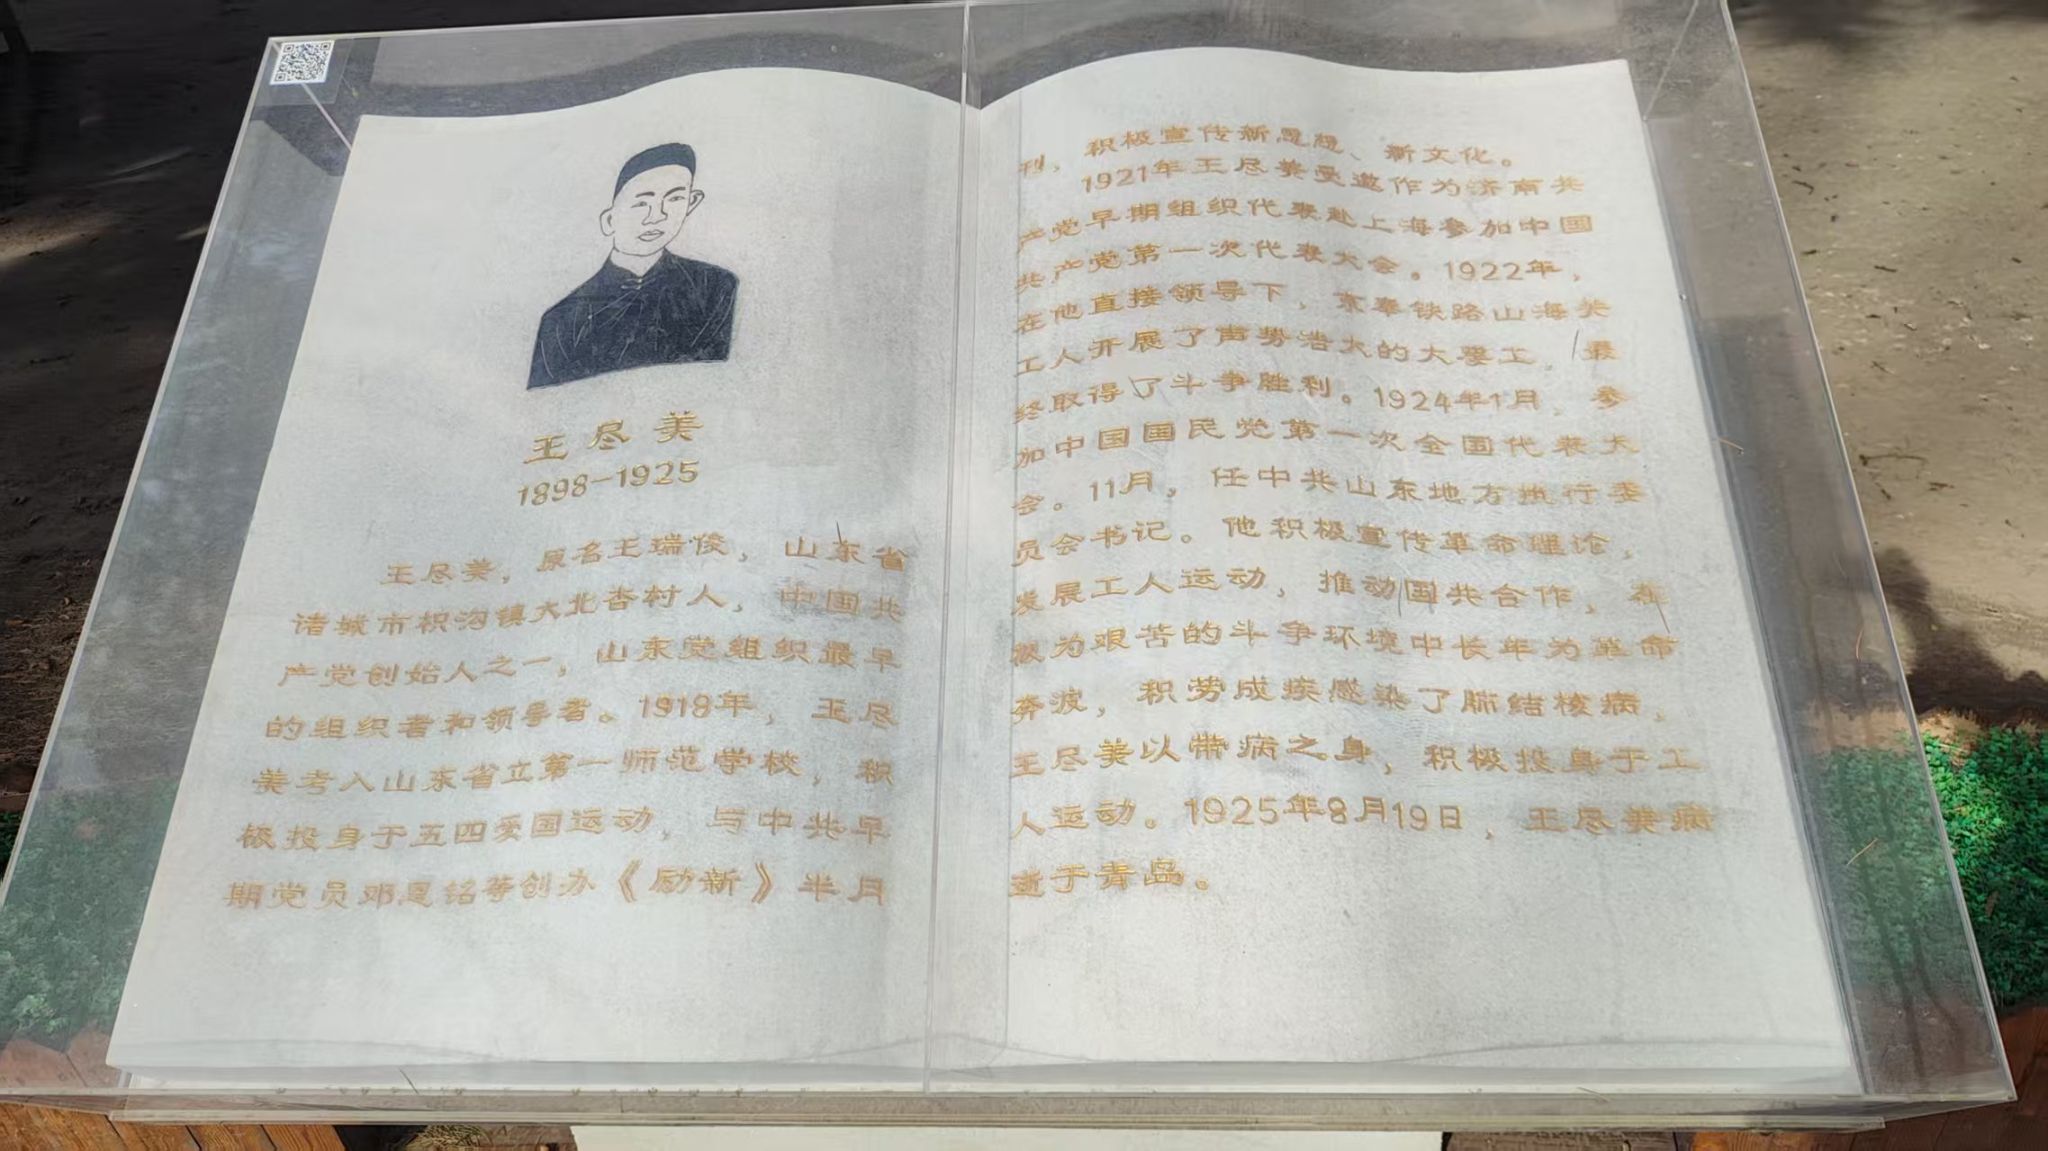 王尽美
1898-1925
王尽美，原名王瑞俊，山东省
诸城市枳沟镇大北杏村人，中国共
产党创始人之一，山东党组织最早
的组织者和领导者。1918年，王尽
美考入山东省立第一师范学校，积
极投身于五四爱国运动，与中共早
期党员邓恩铭等创办《励新》半月
刊，积极宣传新思想、新文化。
1921年王尽美受邀作为济南共
产党早期组织代表赴上海参加中国
共产党第一次代表大会。1922年，
在他直接领导下，京奉铁路山海关
工人开展了声势浩大的大罢工，最
终取得了斗争胜利。1924年1月，参
加中国国民党第一次全国代表大
会。11月，任中共山东地方执行委
员会书记。他积极宣传革命理论，
发展工人运动，推动国共合作，在
极为艰苦的斗争环境中长年为革命
奔波，积劳成疾感染了肺结核病，
王尽美以带病之身，积极投身于工
人运动。1925年8月19日，王尽美病
逝于青岛。